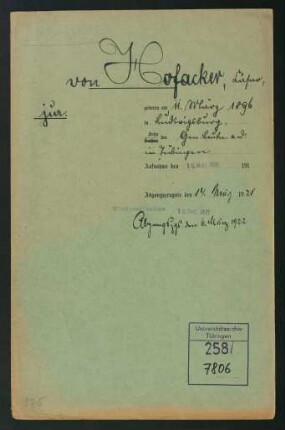 von Hofacker, Cäsar,
jur.
geboren am 11. März 1896
in Ludwigsburg.
Sohn des Gen. Leutn. a. D.
in Tübingen.
Aufnahme den 191
Abgangszeugnis den 14. März 1921
Abgangszgs. den 6. März 1922
Universitätsarchiv
Tübingen
258/
7806